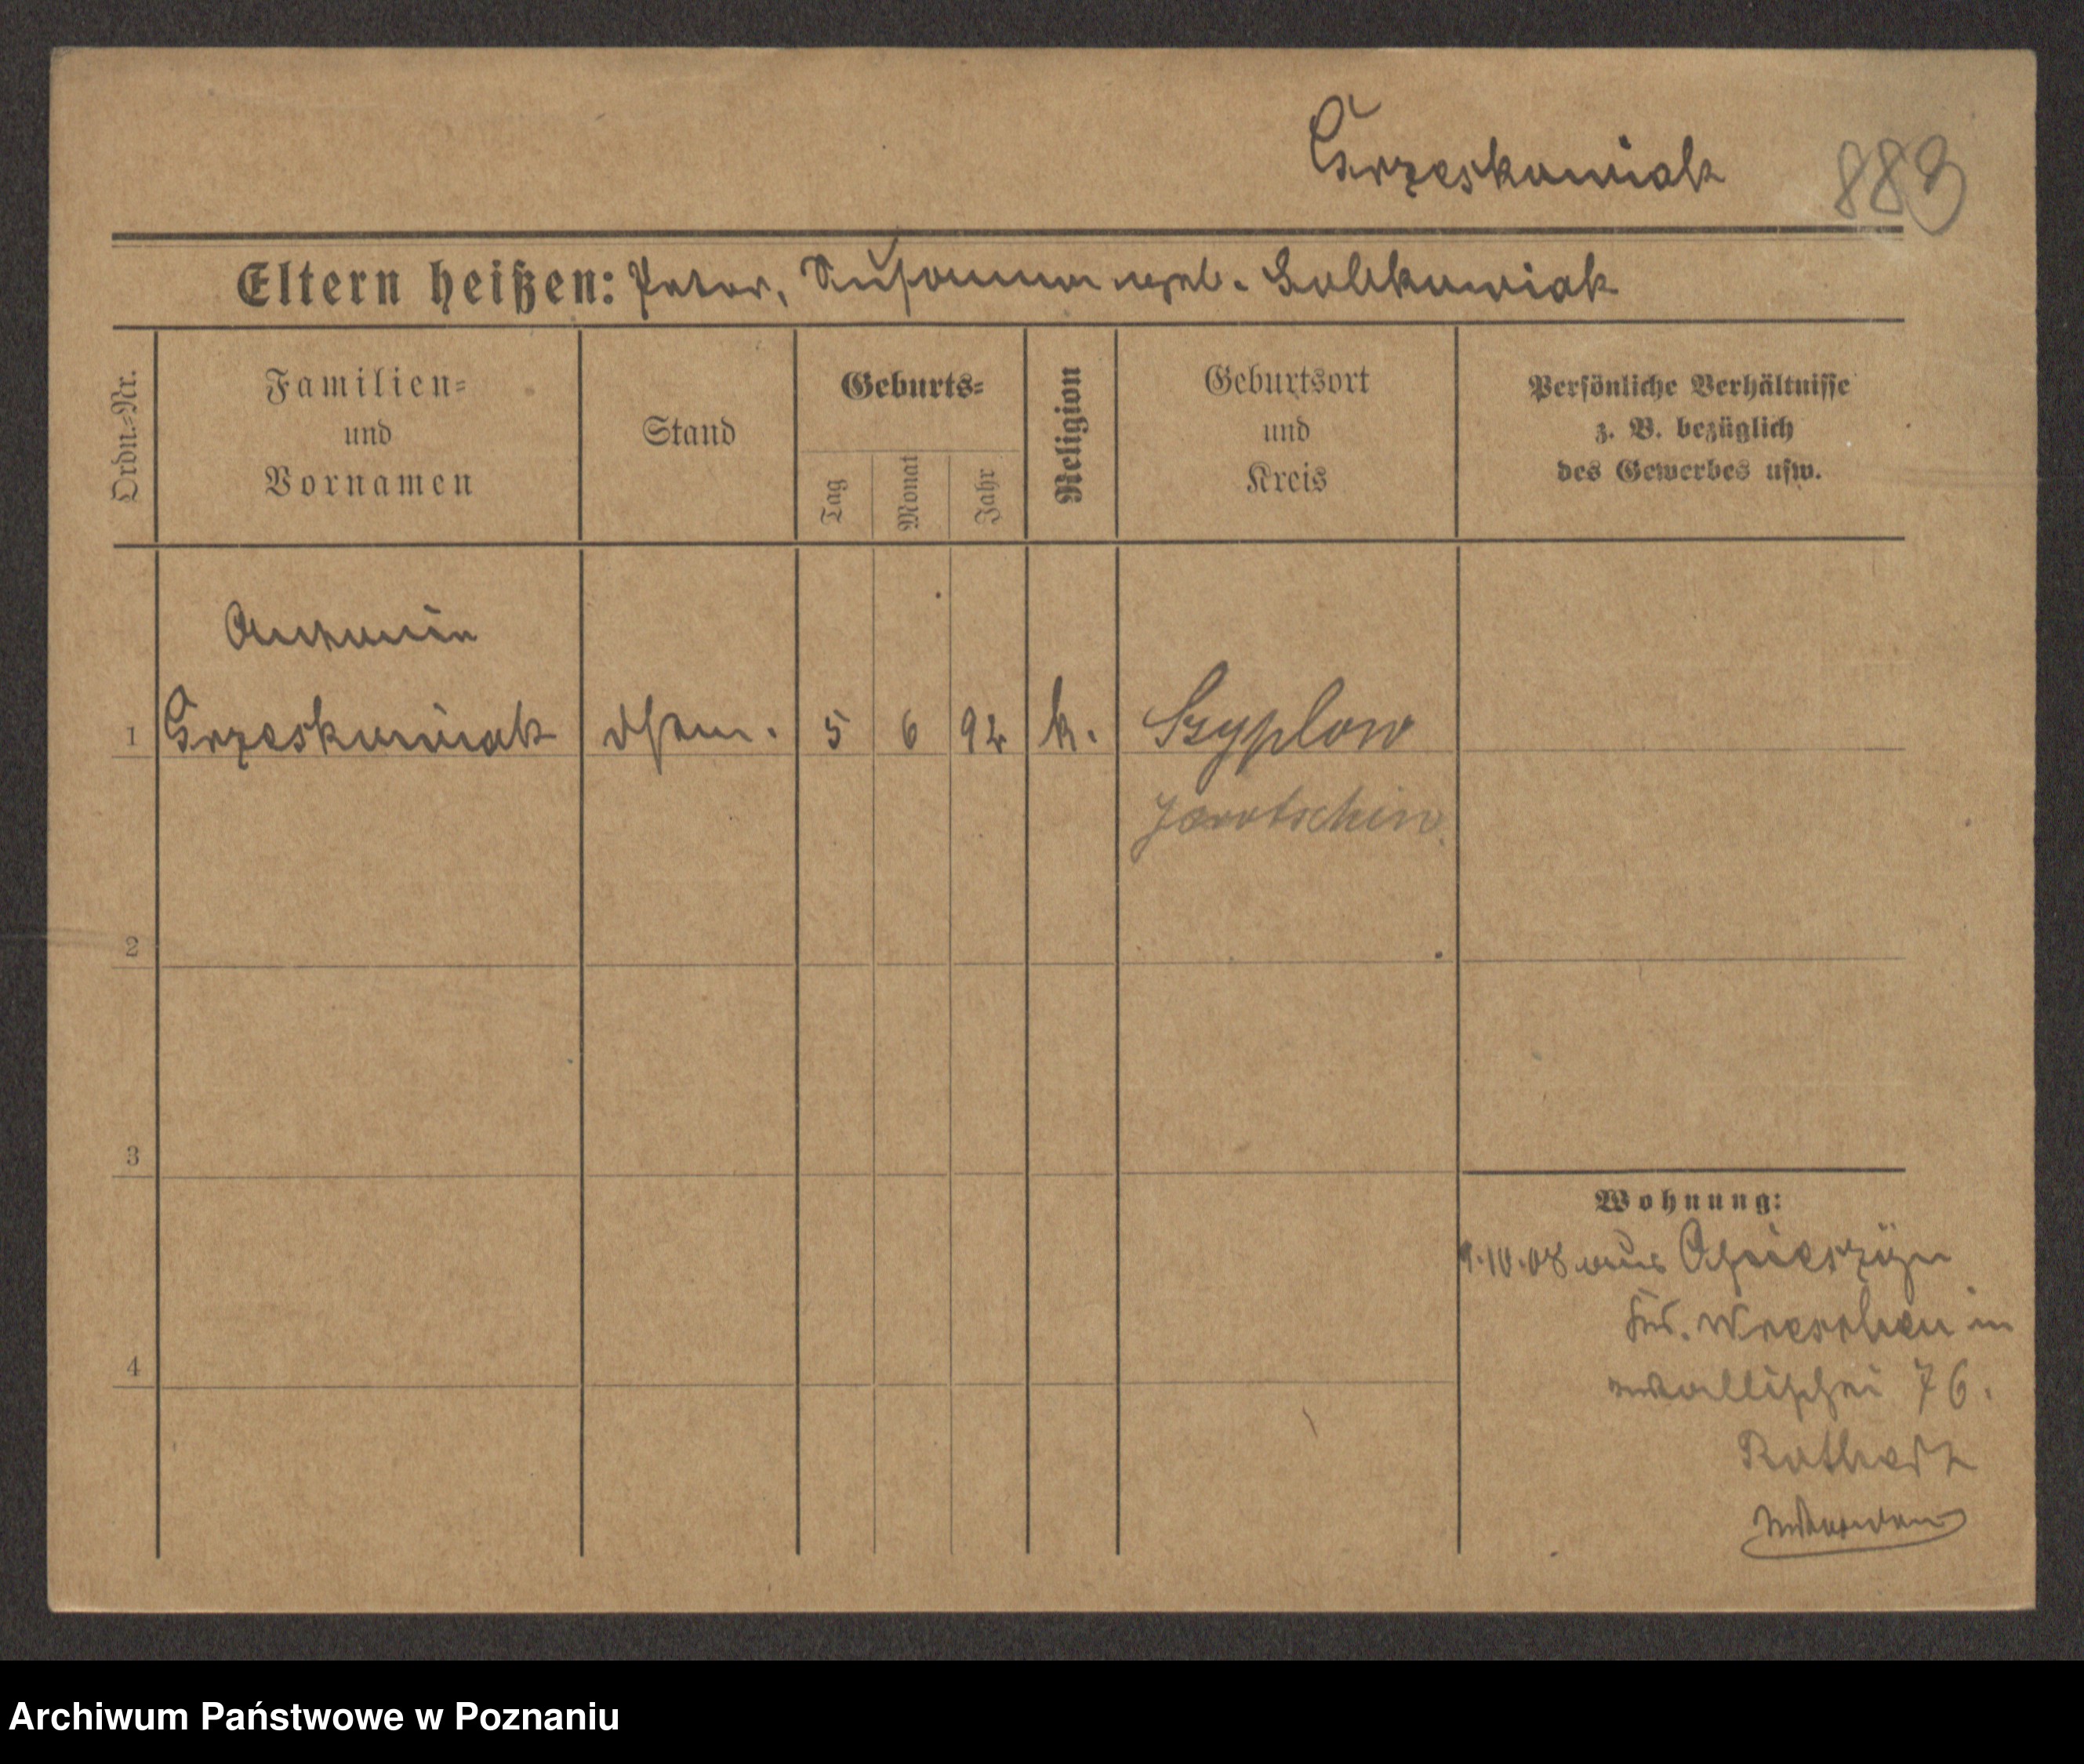 Grzeskowiak 883
Eltern heißen: Peter, Susanna geb.
Ordn.-Nr.
Familien-
und
Vornamen
Stand
Geburts-
Tag
Monat
Jahr
Religion
Geburtsort
und
Kreis
Persönliche Verhältnisse
z. B. bezüglich
des Gewerbes usw.
Antonin
1 Grzeskowiak 5 6 92 k. Szyplow
Jarotschin
2
3
4
Wohnung:
9.10.08 aus
Krs. Wreschen in
Wallischei 76.
Archiwum Państwowe w Poznaniu